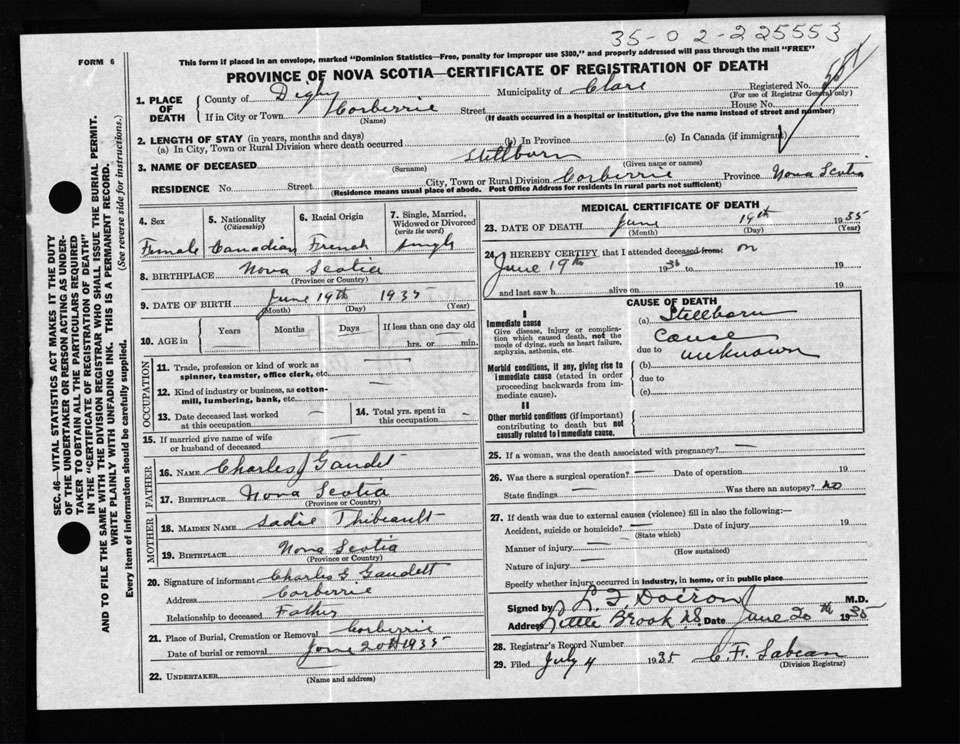 35-02-225553
FORM 6
This form if placed in an envelope, marked "Dominion Statistics—Free, penalty for improper use $300," and properly addressed will pass through the mail "FREE"
PROVINCE OF NOVA SCOTIA—CERTIFICATE OF REGISTRATION OF DEATH
1. PLACE OF DEATH
County of Digby Municipality of Clare Registered No.
(For use of Registrar General only)
If in City or Town Corberrie Street House No.
(Name) (If death occurred in a hospital or institution, give the name instead of street and number)
2. LENGTH OF STAY (in years, months and days)
(a) In City, Town or Rural Division where death occurred (b) In Province (c) In Canada (if immigrant)
3. NAME OF DECEASED Stillborn
(Surname) (Given name or names)
RESIDENCE No. Street City, Town or Rural Division Corberrie Province Nova Scotia
(Residence means usual place of abode. Post Office Address for residents in rural parts not sufficient)
4. Sex
Female
5. Nationality
(Citizenship)
Canadian
6. Racial Origin
French
7. Single, Married, Widowed or Divorced
(write the word)
Single
8. BIRTHPLACE Nova Scotia
(Province or Country)
9. DATE OF BIRTH June 19th 1935
(Month) (Day) (Year)
10. AGE in
Years Months Days If less than one day old
hrs. or min.
OCCUPATION
11. Trade, profession or kind of work as
spinner, teamster, office clerk, etc. —
12. Kind of industry or business, as cotton-
mill, lumbering, bank, etc. —
13. Date deceased last worked
at this occupation —
14. Total yrs. spent in
this occupation —
15. If married give name of wife
or husband of deceased —
FATHER
16. NAME Charles J Gaudet
17. BIRTHPLACE Nova Scotia
(Province or Country)
MOTHER
18. MAIDEN NAME Sadie Thibeault
19. BIRTHPLACE Nova Scotia
(Province or Country)
20. Signature of informant Charles G. Gaudett
Address Corberrie
Relationship to deceased Father
21. Place of Burial, Cremation or Removal Corberrie
Date of burial or removal June 20th 1935
22. UNDERTAKER
(Name and address)
MEDICAL CERTIFICATE OF DEATH
23. DATE OF DEATH June 19th 1935
(Month) (Day) (Year)
24. I HEREBY CERTIFY that I attended deceased from: on
June 19th 1935 to 19
and last saw h alive on 19
CAUSE OF DEATH
I
Immediate cause
Give disease, injury or complica-
tion which caused death, not the
mode of dying, such as heart failure,
asphyxia, asthenia, etc.
(a) Stillborn
Cause
due to unknown
Morbid conditions, if any, giving rise to
immediate cause (stated in order
proceeding backwards from im-
mediate cause).
(b)
due to
(c)
II
Other morbid conditions (if important)
contributing to death but not
causally related to immediate cause.
25. If a woman, was the death associated with pregnancy? —
26. Was there a surgical operation? — Date of operation 19
State findings — Was there an autopsy? no
27. If death was due to external causes (violence) fill in also the following:—
Accident, suicide or homicide? — Date of injury 19
(State which)
Manner of injury —
(How sustained)
Nature of injury —
Specify whether injury occurred in industry, in home, or in public place
Signed by L. F. Doiron M.D.
Address Little Brook N.S. Date June 20th 1935
28. Registrar's Record Number
29. Filed July 4 1935 C. F. Sabean
(Division Registrar)
SEC. 46—VITAL STATISTICS ACT MAKES IT THE DUTY
OF THE UNDERTAKER OR PERSON ACTING AS UNDER-
TAKER TO OBTAIN ALL THE PARTICULARS REQUIRED
IN THE "CERTIFICATE OF REGISTRATION OF DEATH"
AND TO FILE THE SAME WITH THE DIVISION REGISTRAR WHO SHALL ISSUE THE BURIAL PERMIT.
WRITE PLAINLY WITH UNFADING INK. THIS IS A PERMANENT RECORD.
Every item of information should be carefully supplied. (See reverse side for instructions.)